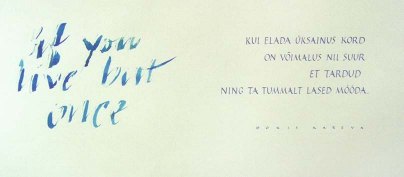 if you
live but
once
KUI ELADA ÜKSAINUS KORD
ON VÕIMALUS NII SUUR
ET TARDUD
NING TA TUMMALT LASED MÖÖDA.
DORIS KAREVA